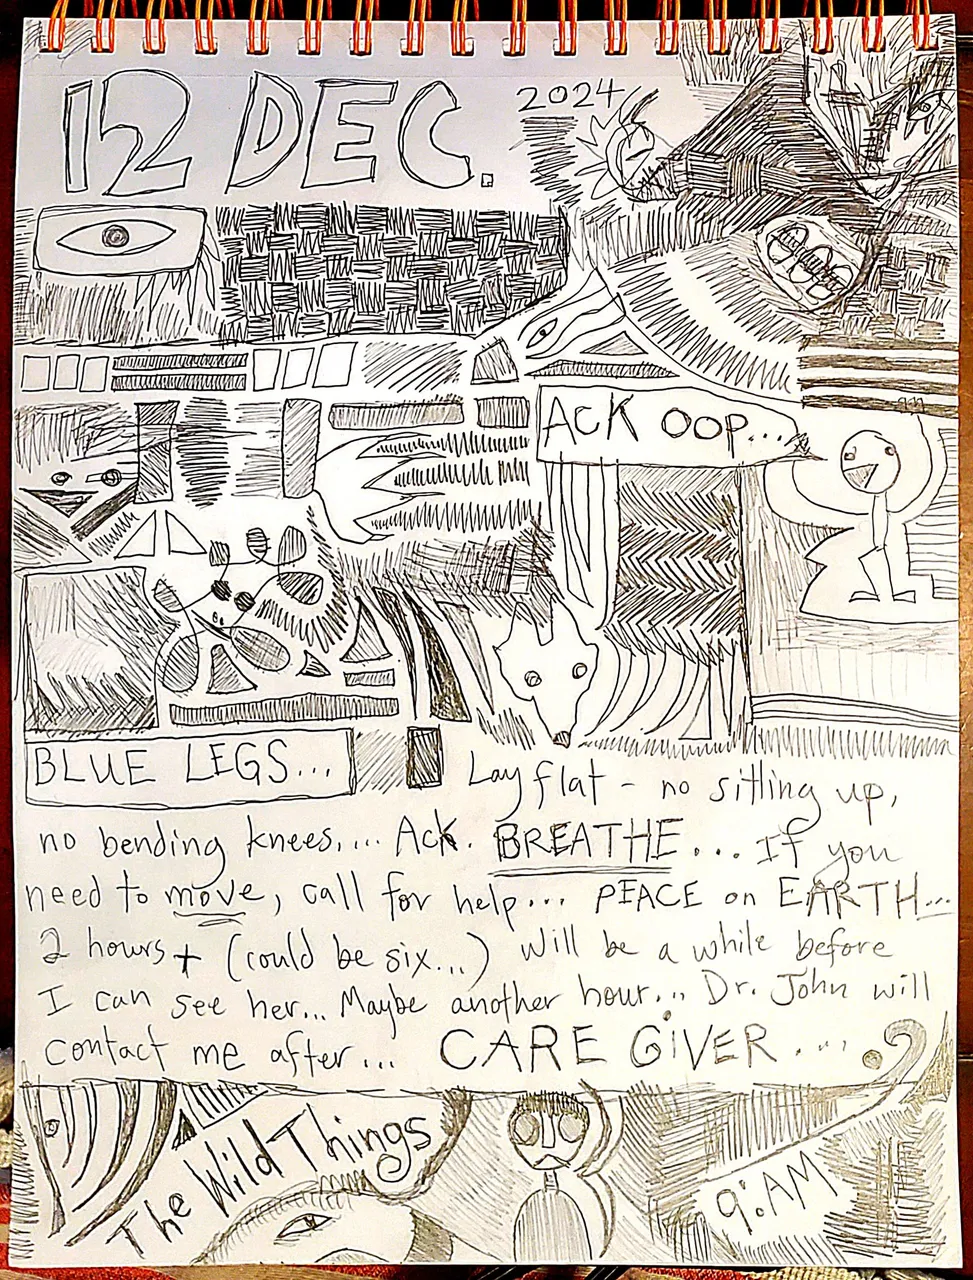 12 DEC. 2024
ACK OOP...
BLUE LEGS...
Lay flat - no sitting up,
no bending knees.... Ack. BREATHE... If you
need to move, call for help... PEACE on EARTH...
2 hours + (could be six...) Will be a while before
I can see her... Maybe another hour... Dr. John will
contact me after... CARE GiVER....
The Wild Things
9:AM